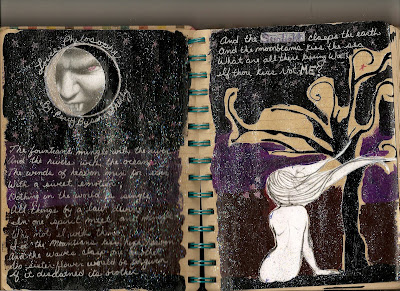 Love's Philosophy
By Percy Bysshe Shelley
The fountains mingle with the river
And the rivers with the ocean
The winds of heaven mix for ever
With a sweet emotion;
Nothing in the world is single
All things by a law divine
In one spirit meet
Why not I with thine
See the mountains kiss high
And the waves clasp one another
No sister flower would be forgiven
If it disdained its brother
And the sunlight clasps the earth
And the moonbeams kiss the sea
What are all these kissing worth
If thou kiss not ME?